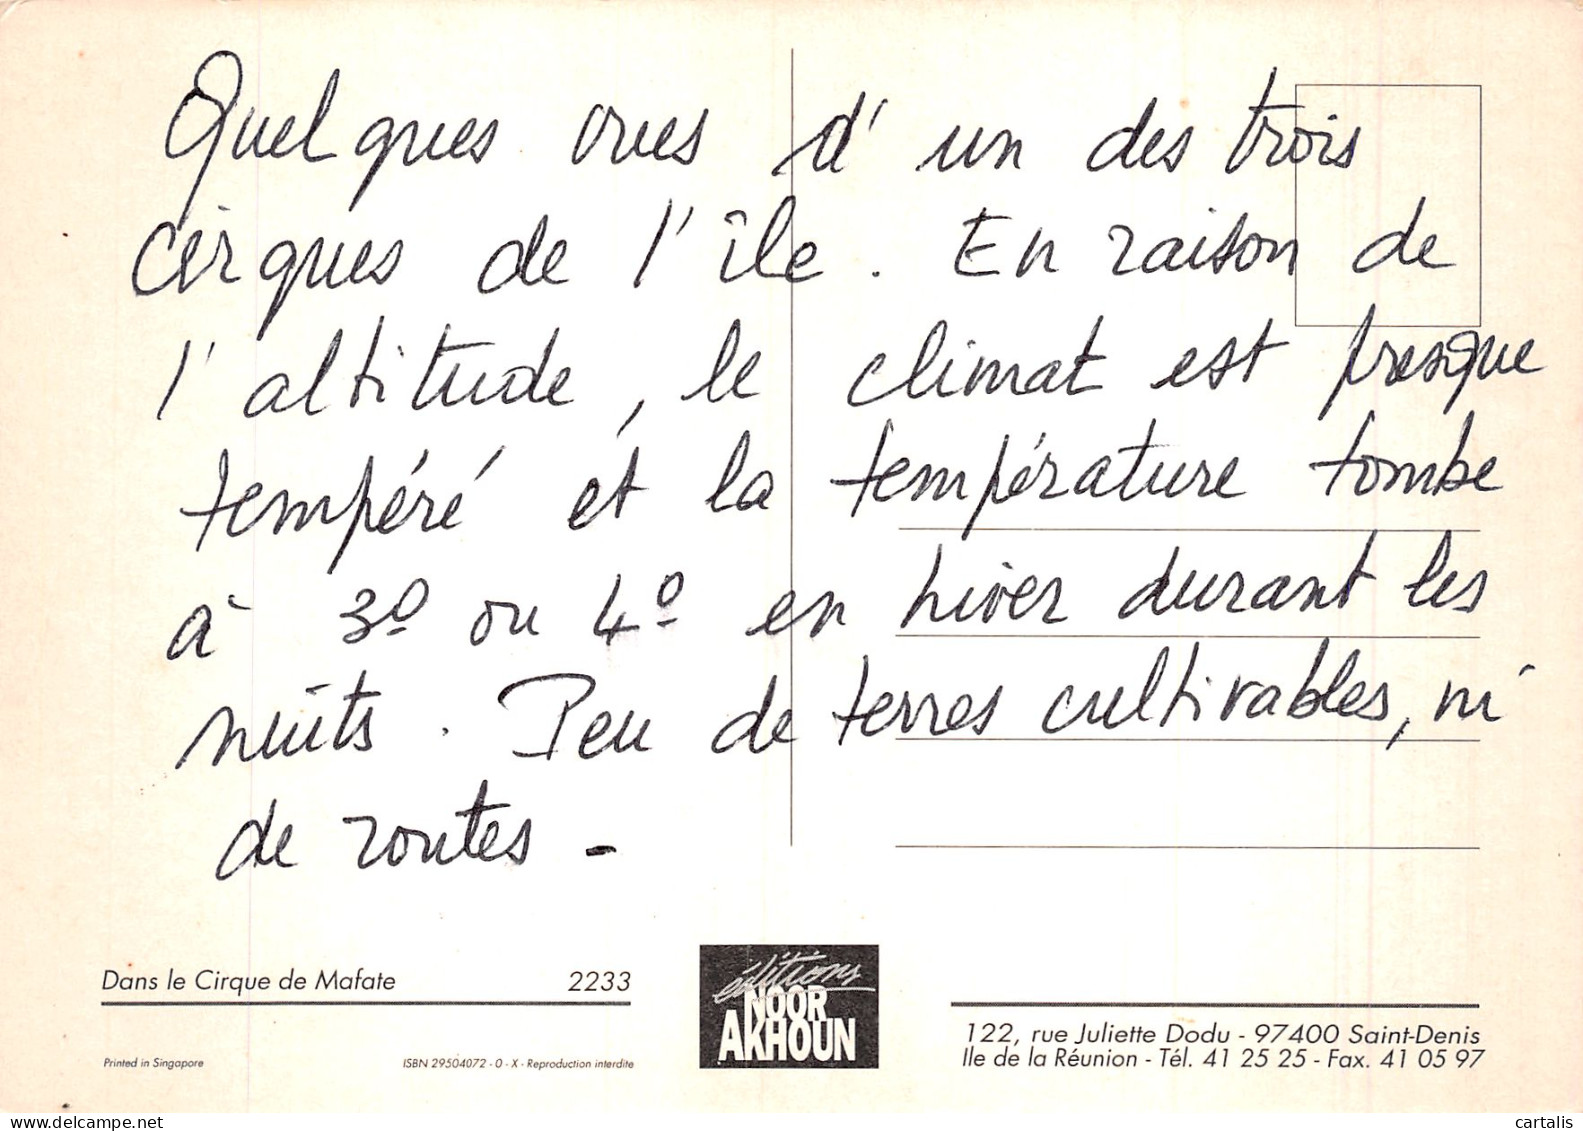 Quelques vues d'un des trois
cirques de l'île. En raison de
l'altitude, le climat est presque
tempéré et la température tombe
à 3º ou 4º en hiver durant les
nuits. Peu de terres cultivables, ni
de routes -
Dans le Cirque de Mafate 2233
éditions
NOOR
AKHOUN
122, rue Juliette Dodu - 97400 Saint-Denis
Ile de la Réunion - Tél. 41 25 25 - Fax. 41 05 97
Printed in Singapore
ISBN 29504072 - 0 - X - Reproduction interdite
cartalis